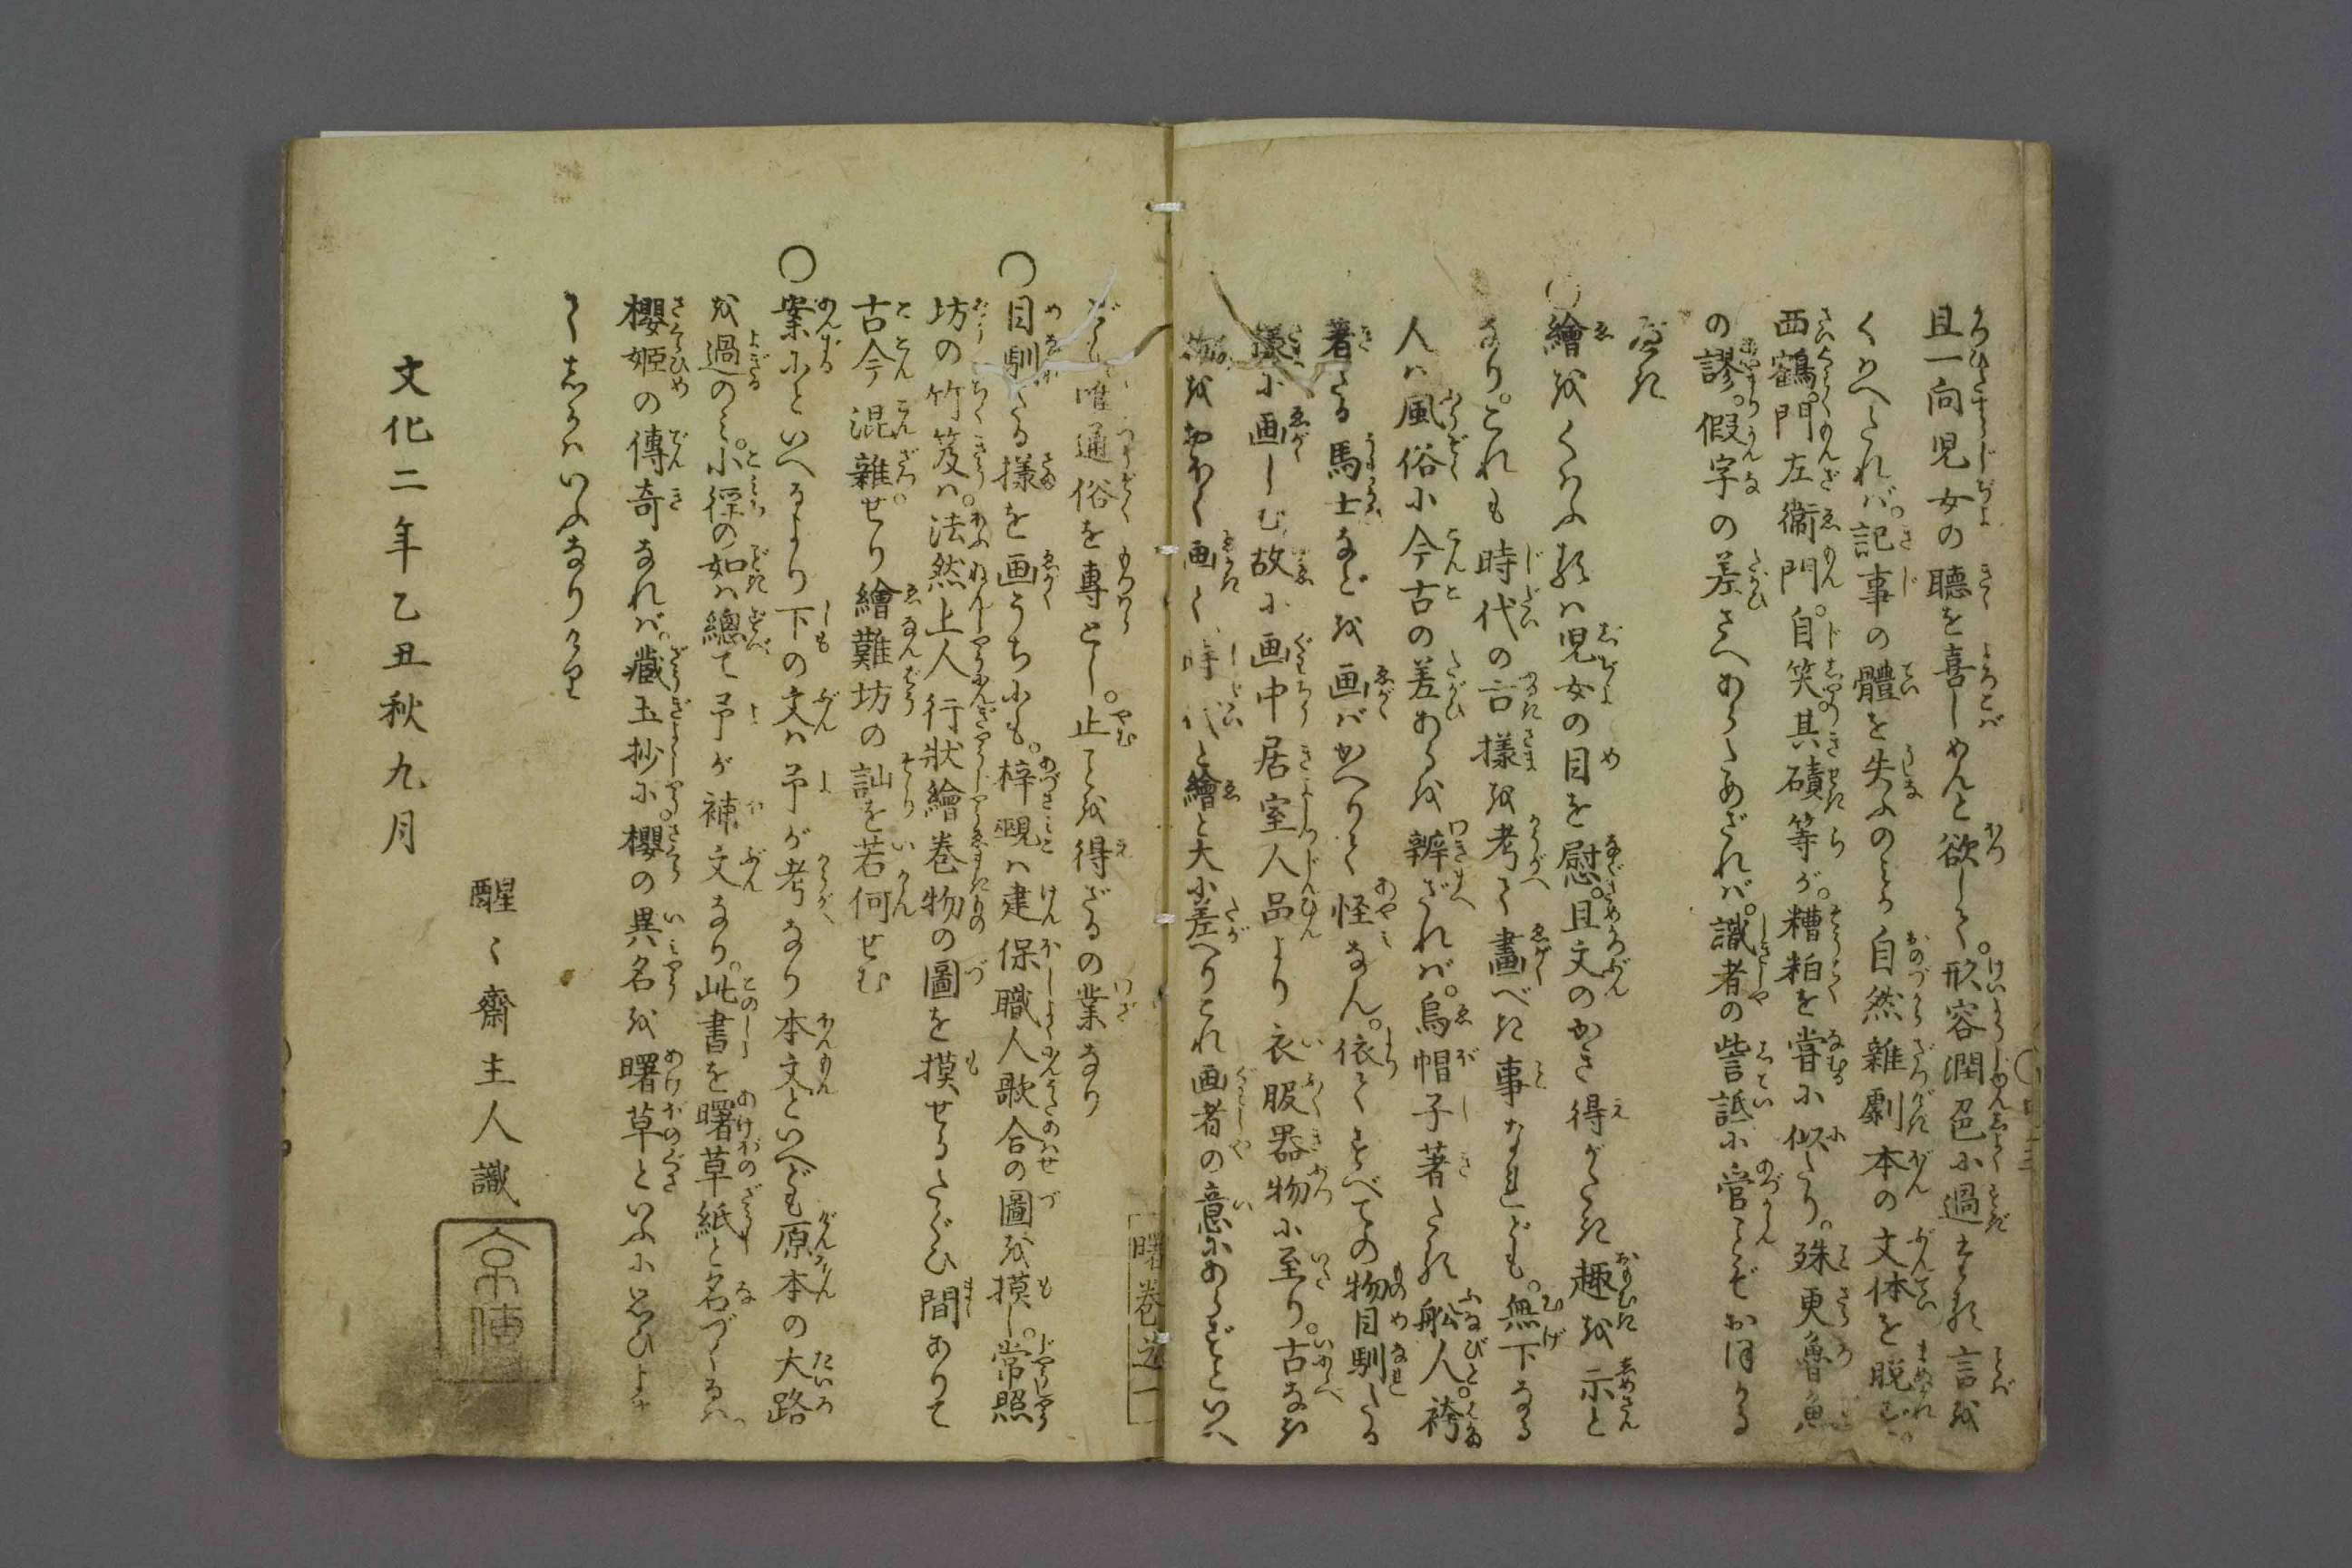 且一向児女の聴を喜しめんと欲して。形容潤色に過たる言を
くはへたれば。記事の體を失ふのみか自然雑劇本の文体を脱ず。
西鶴。門左衞門。自笑其磧等が。糟粕を嘗に似たり。殊更魯魚
の謬。假字の差さへあらためざれば。識者の訾詆に官ことぞおほかる
べき
○繪をくはふるは児女の目を慰。且文のかき得がたき趣を示と
なり。これも時代の言様を考て畫べき事なれども。無下なる
人は風俗に今古の差あるを辨ざれば。烏帽子著たる舩人。袴
著たる馬士などを画ばかへりて怪なん。依てすべての物目馴たる
様に画しむ故に画中居室人品より衣服器物に至り。古なき
物をおほく画く時代と繪と大に差へりこれ画者の意にあらずといへ
ども唯通俗を專とし。止ことを得ざるの業なり
○目馴たる様を画うちにも。梓覡は建保職人歌合の圖を摸し。常照
坊の竹笈は。法然上人行狀繪巻物の圖を摸せるたぐひ間ありて
古今混雑。せり繪難坊の訕を若何せむ
○案にといへるより下の文は予が考なり本文といへども原本の大路
を過のみ。小徑の如は總て予が補文なり。此書を曙草紙と名づくるは
櫻姫の傳奇なれば。藏玉抄に櫻の異名を曙草といふに思ひよせ
てしかはいふなりけり
文化二年乙丑秋九月
醒々齋主人識
京傳
曙巻之一